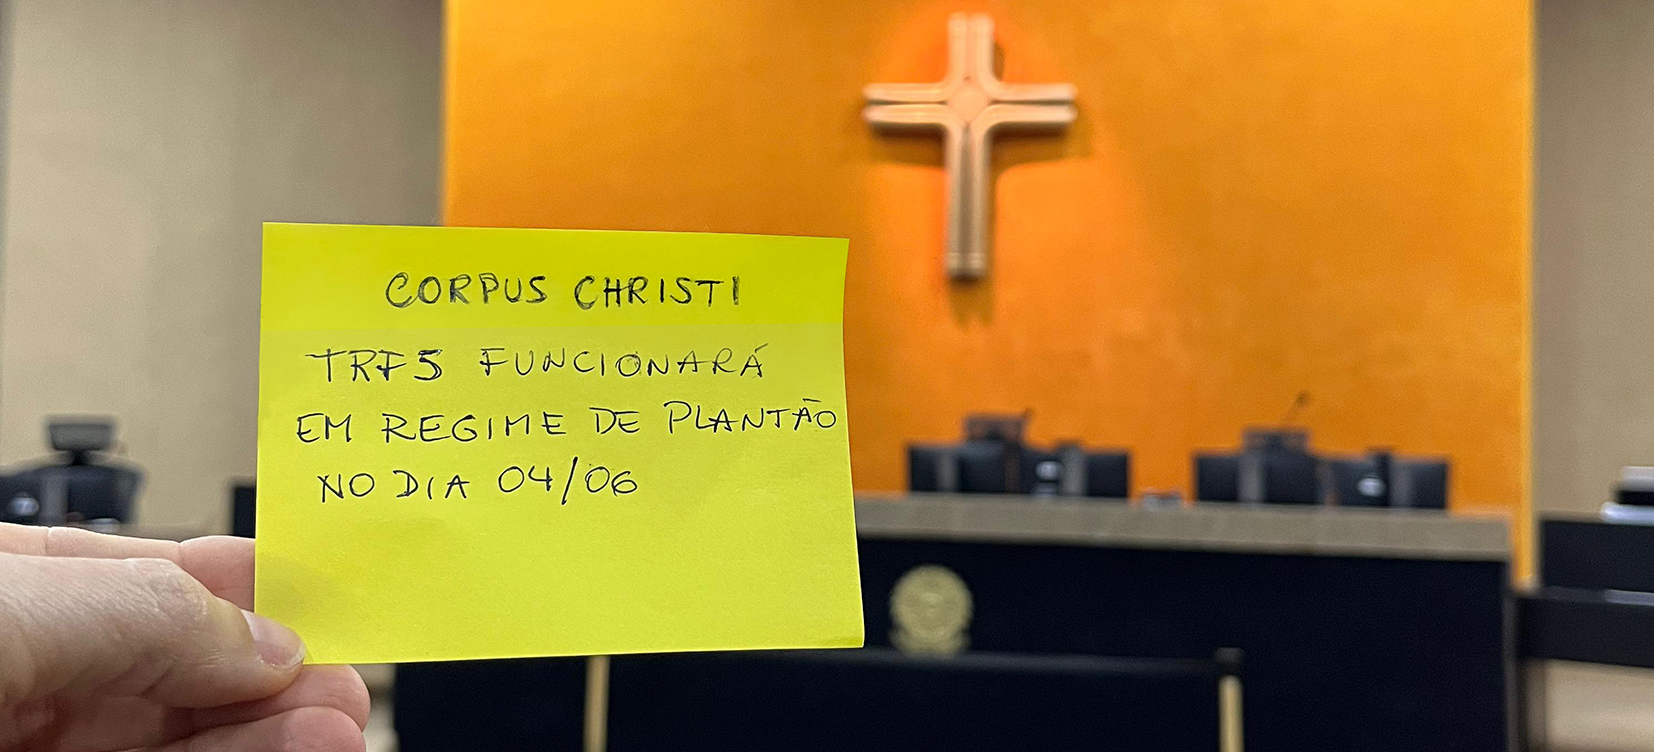 CORPUS CHRISTI
TRF5 FUNCIONARÁ
EM REGIME DE PLANTÃO
NO DIA 04/06